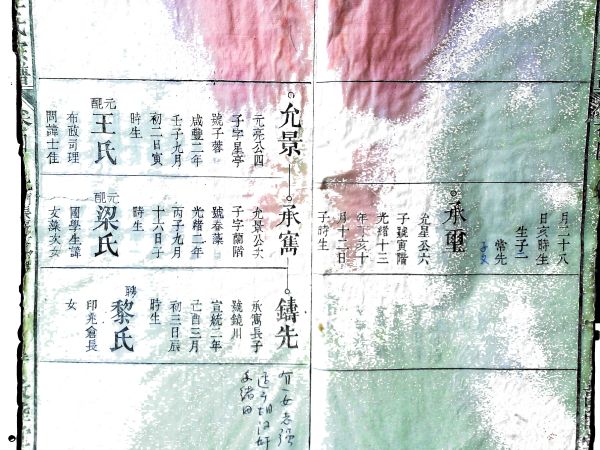 月二十八
日亥時生
生子二
常先
承璽
允星公六
子號寅階
光緒十三
年丁亥十
月十二日
子時生
允景
元亮公四
子字星亭
號子蓉
咸豐二年
壬子九月
初二日寅
時生
元配
王氏
布政司理
問諱士佳
承寯
允景公次
子字蘭階
號春藻
光緒二年
丙子九月
十六日子
時生
元配
梁氏
國學生諱
女藻次女
鑄先
承寯長子
號鏡川
宣統元年
己酉三月
初三日辰
時生
聘
黎氏
印兆倉長
女